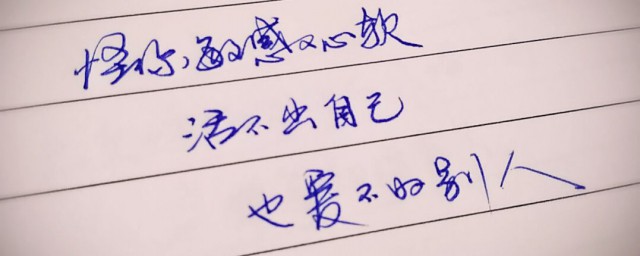 怪你敏感又心软
活不出自己
也爱不好别人